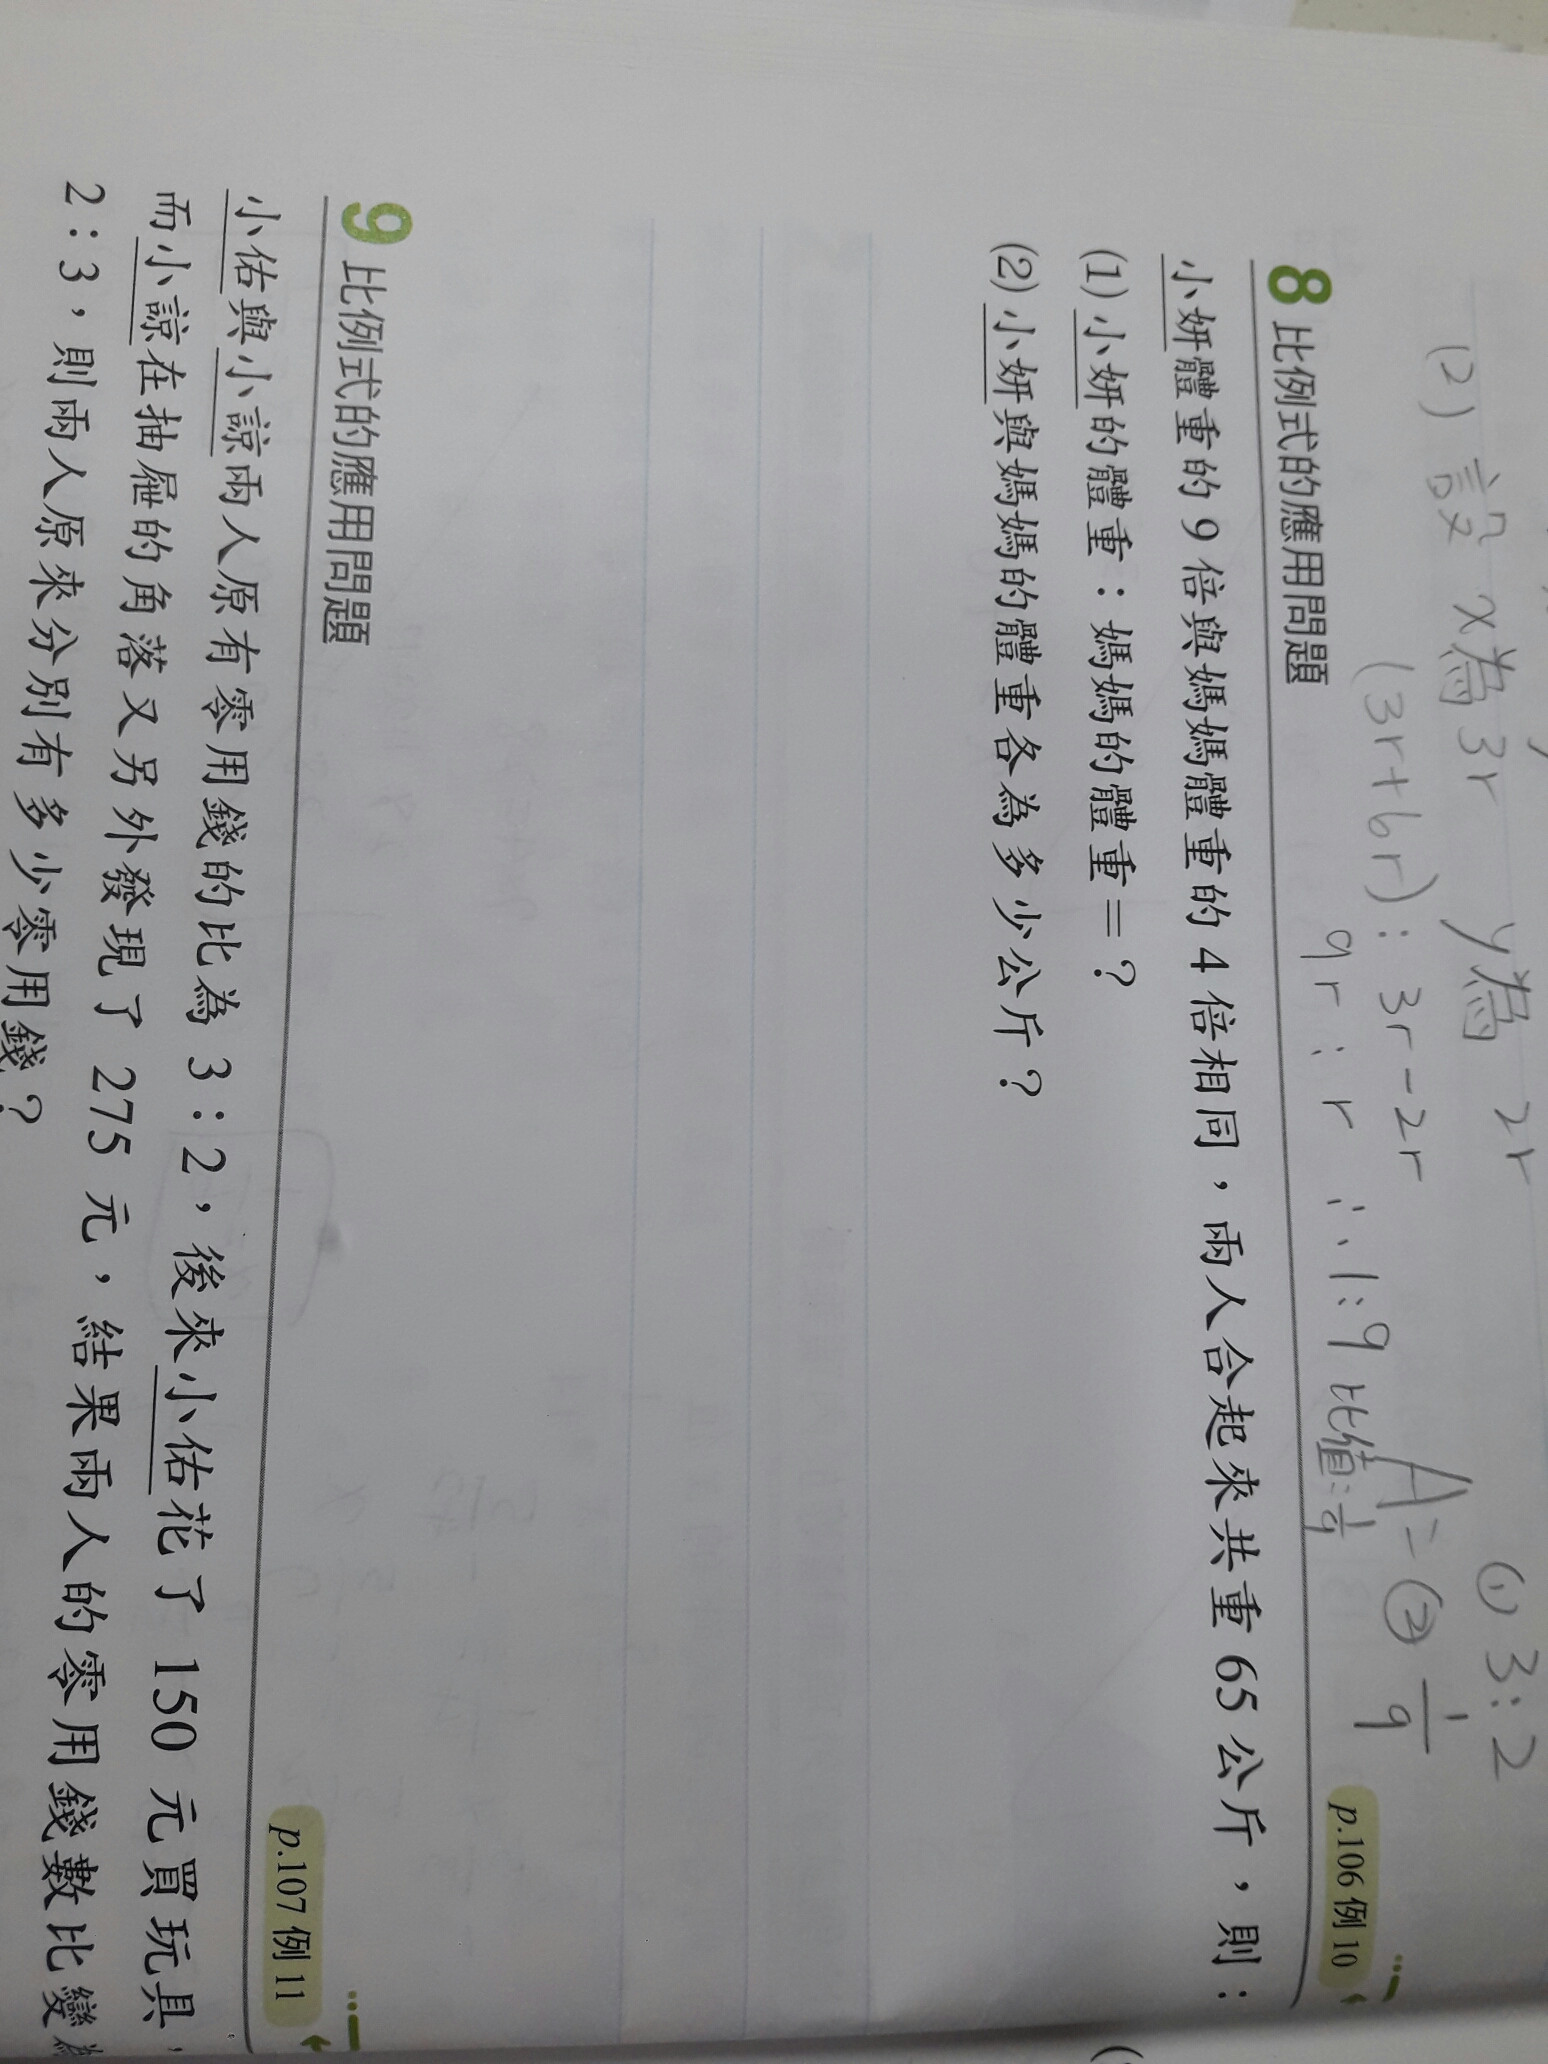 (1) 3:2
(2) 設 x為3r y為 2r
(3r+6r): 3r-2r
9r : r ∴ 1:9 比值:1/9
A = (2) 1/9
8 比例式的應用問題 p.106 例 10
小妍體重的 9 倍與媽媽體重的 4 倍相同，兩人合起來共重 65 公斤，則：
(1) 小妍的體重：媽媽的體重＝？
(2) 小妍與媽媽的體重各為多少公斤？
9 比例式的應用問題 p.107 例 11
小佑與小諒兩人原有零用錢的比為 3：2，後來小佑花了 150 元買玩具，
而小諒在抽屜的角落又另外發現了 275 元，結果兩人的零用錢數比變為
2：3，則兩人原來分別有多少零用錢？